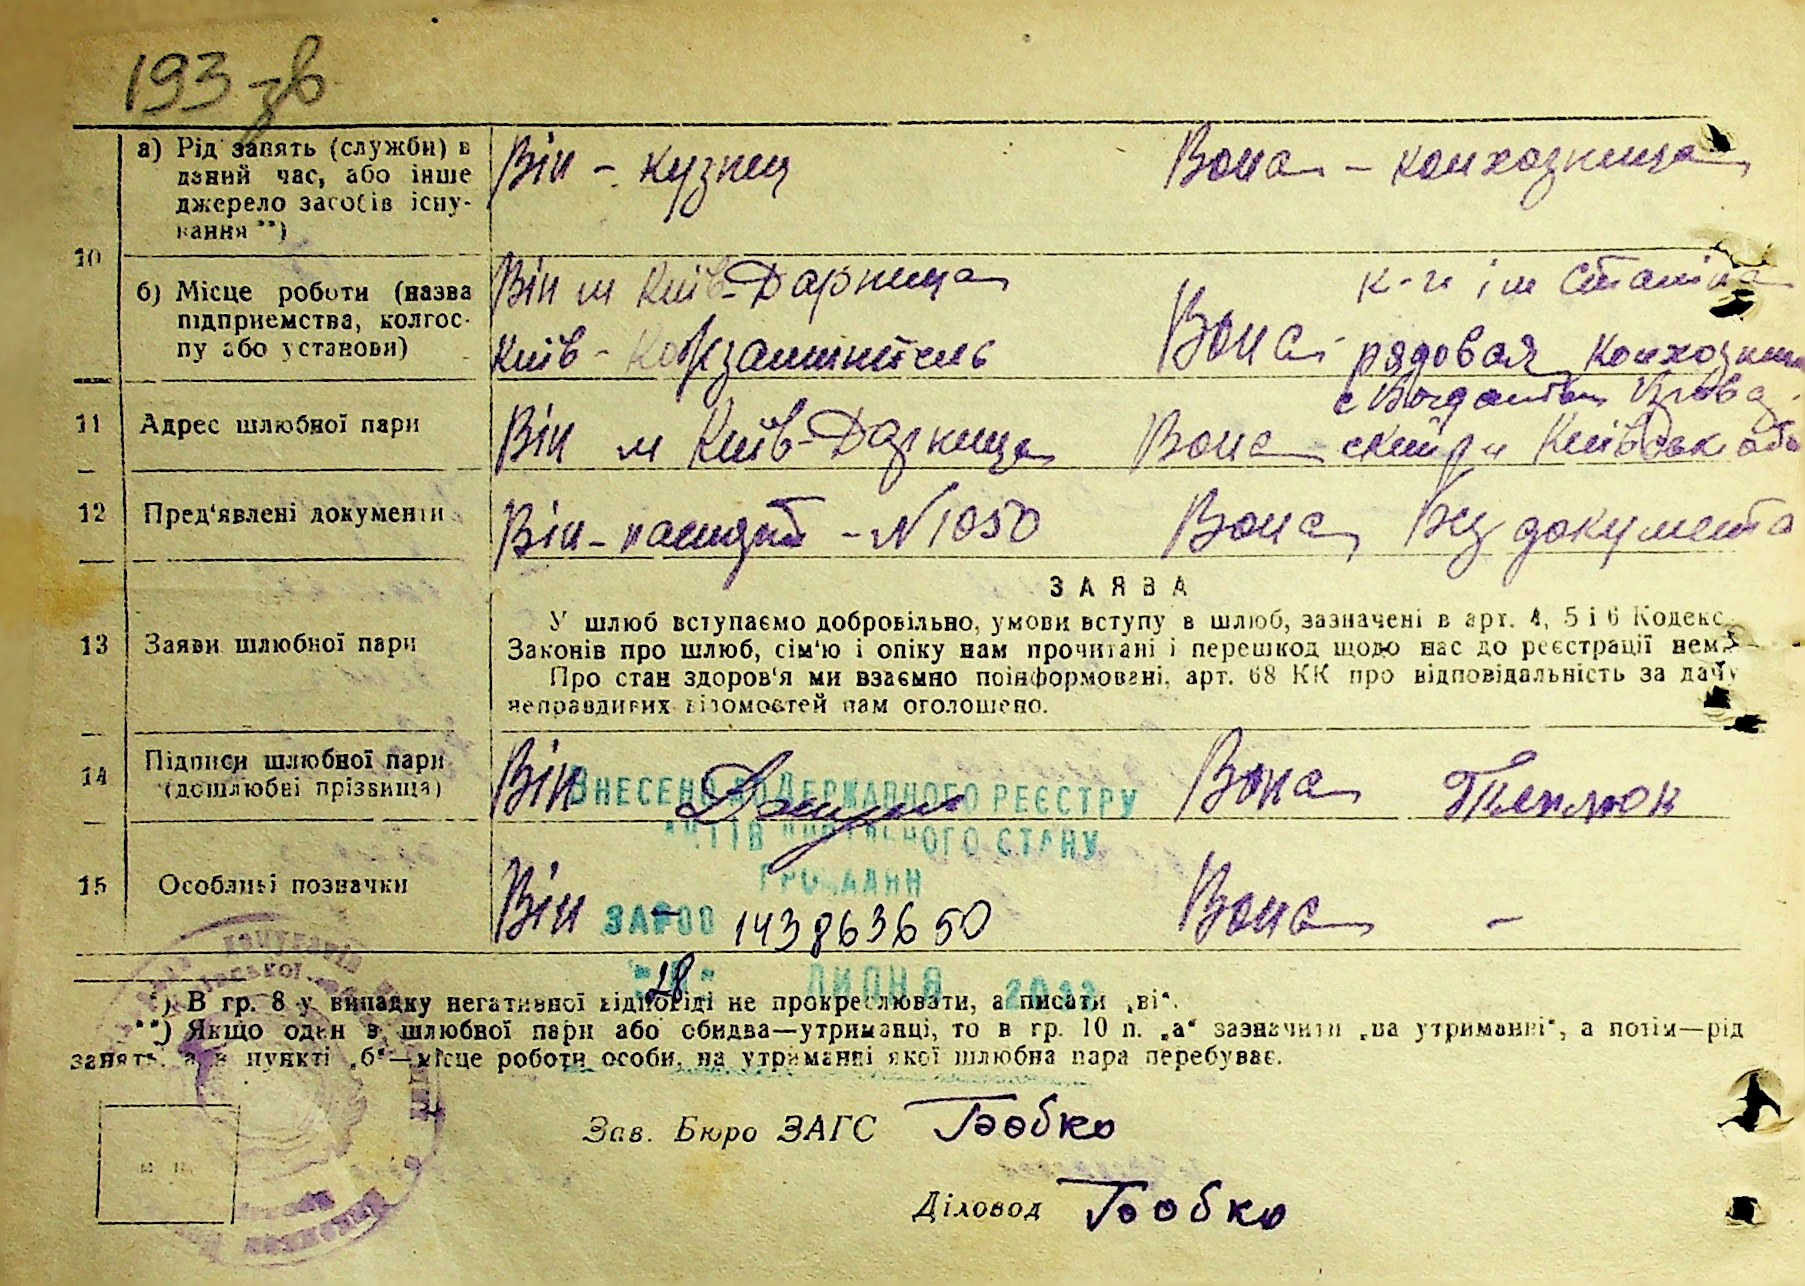 193 зв
10
а) Рід занять (служби) в даний час, або інше джерело засобів існування **)
Він - кузнец
Вона - колхозница
б) Місце роботи (назва підприємства, колгоспу або установи)
Він м Київ-Дарница
Київ-
Вона к-п ім Сталіна
рядовая
11
Адрес шлюбної пари
Він м Київ-Дарница
Вона с
Київськ обл
12
Пред'явлені документи
Він - паспорт - N 1050
Вона Без документа
13
Заяви шлюбної пари
ЗАЯВА
У шлюб вступаємо добровільно, умови вступу в шлюб, зазначені в арт. 4, 5 і 6 Кодекс
Законів про шлюб, сім'ю і опіку нам прочитані і перешкод щодо нас до реєстрації нема
Про стан здоров'я ми взаємно поінформовані, арт. 68 КК про відповідальність за дачу
неправдивих відомостей нам оголошено.
14
Підписи шлюбної пари
(дошлюбні прізвища)
Він
Вона Теплюк
ВНЕСЕНО ДО ДЕРЖАВНОГО РЕЄСТРУ
АКТІВ ЦИВІЛЬНОГО СТАНУ
ГРОМАДЯН
15
Особливі позначки
Він -
Вона -
ЗА №00 1438636 50
28 ЛИПНЯ
*) В гр. 8 у випадку негативної відповіді не прокреслювати, а писати „ні“.
**) Якщо один з шлюбної пари або обидва—утриманці, то в гр. 10 п. „а“ зазначити „на утриманні“, а потім—рід
занять, а в пункті „б“—місце роботи особи, на утриманні якої шлюбна пара перебуває.
Зав. Бюро ЗАГС Бобко
Діловод Бобко
м п.